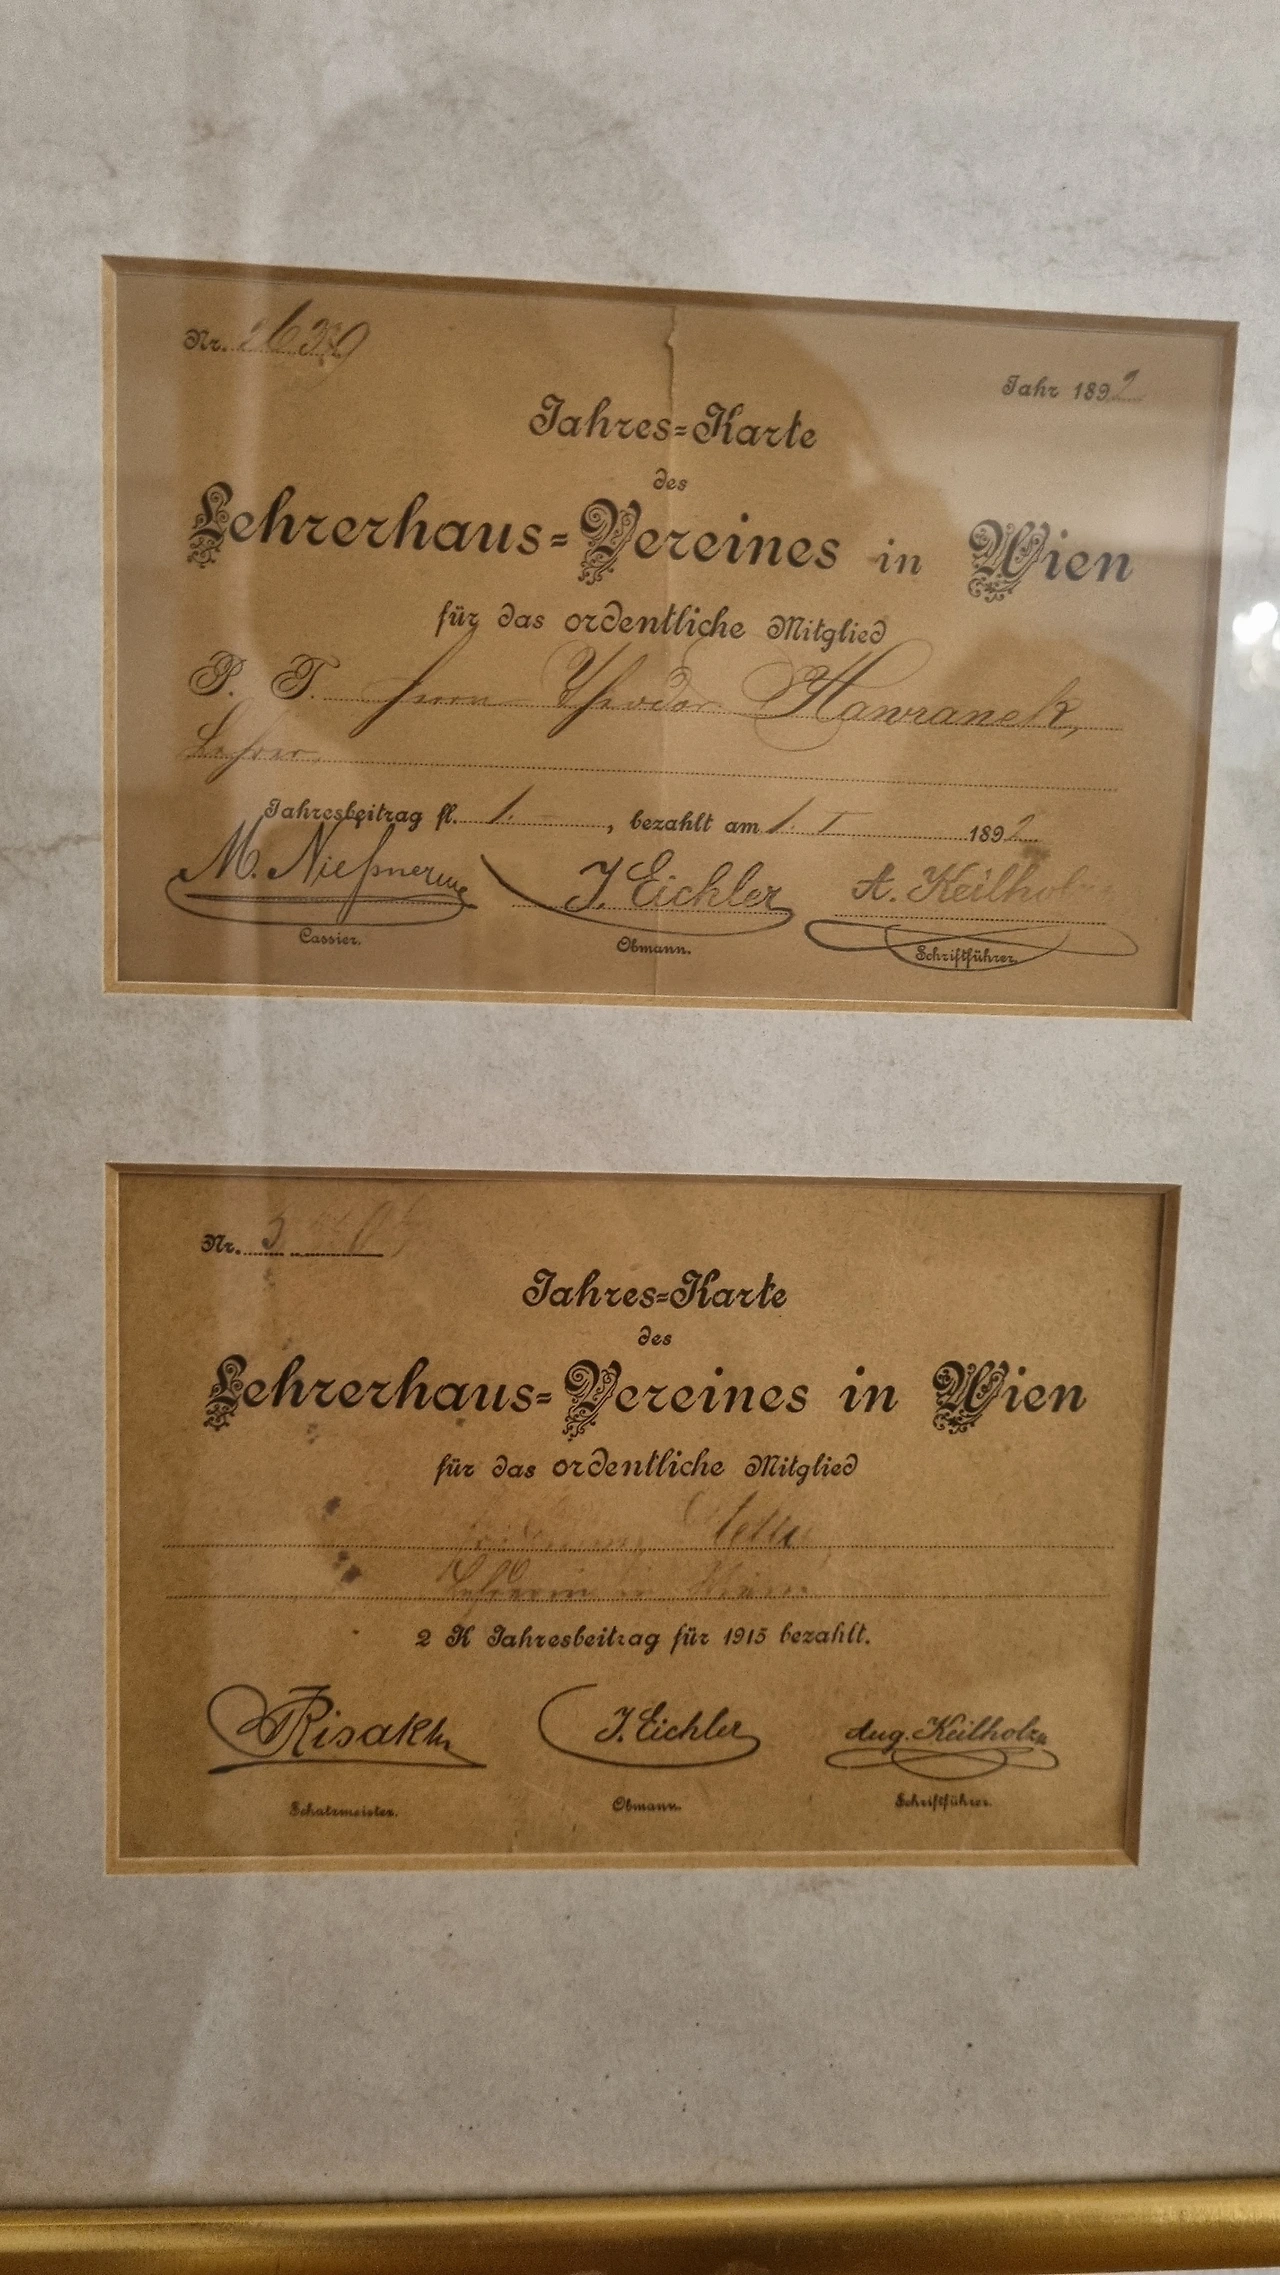 Nr.
Jahr 1892
Jahres=Karte
des
Lehrerhaus=Vereines in Wien
für das ordentliche Mitglied
P. T. Herrn Theodor Hawranek,
Lehrer.
Jahresbeitrag fl. 1.–, bezahlt am 1. I 1892
M. Nießner J. Eichler A. Keilholz
Cassier. Obmann. Schriftführer.
Nr.
Jahres=Karte
des
Lehrerhaus=Vereines in Wien
für das ordentliche Mitglied
Lehrerin in Wien.
2 K Jahresbeitrag für 1915 bezahlt.
Risakh J. Eichler Aug. Keilholz
Schatzmeister. Obmann. Schriftführer.